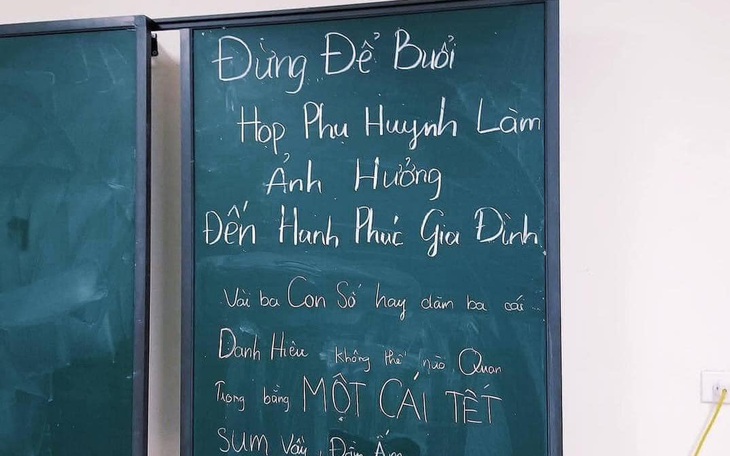 Đừng Để Buổi
Họp Phụ Huynh Làm
Ảnh Hưởng
Đến Hạnh Phúc Gia Đình
Vài ba Con Số hay dăm ba cái
Danh Hiệu không thể nào Quan
Trọng bằng MỘT CÁI TẾT
SUM Vầy, Đầm Ấm